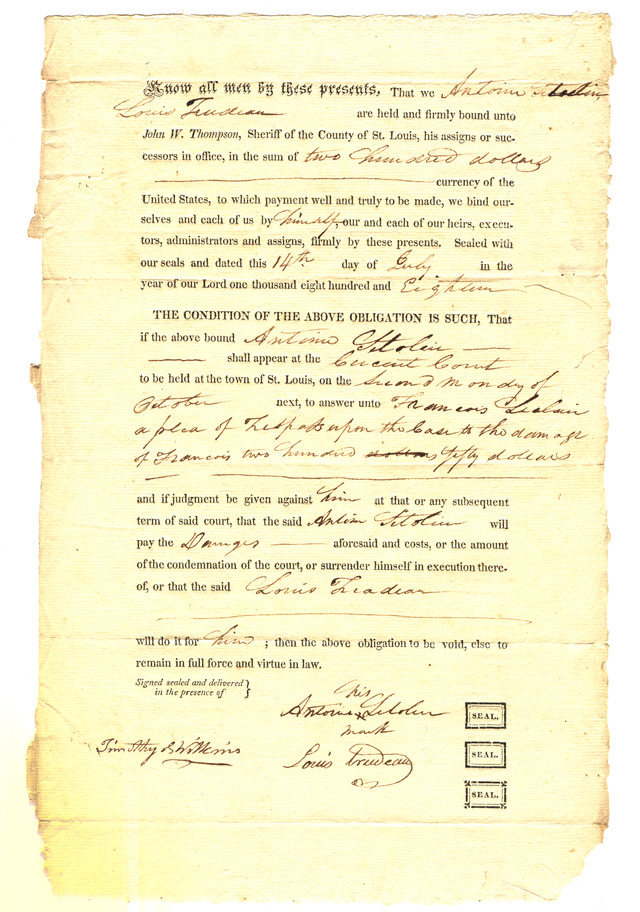 Know all men by these presents, That we Antoine
Louis Trudeau are held and firmly bound unto
John W. Thompson, Sheriff of the County of St. Louis, his assigns or suc-
cessors in office, in the sum of two hundred dollars
currency of the
United States, to which payment well and truly to be made, we bind our-
selves and each of us by himself, our and each of our heirs, execu-
tors, administrators and assigns, firmly by these presents. Sealed with
our seals and dated this 14th day of July in the
year of our Lord one thousand eight hundred and Eighteen
THE CONDITION OF THE ABOVE OBLIGATION IS SUCH, That
if the above bound Antoine
shall appear at the Circuit Court
to be held at the town of St. Louis, on the second Monday of
October next, to answer unto Francois Leclair
a plea of Trespass upon the Case to the damage
of Francois two hundred dollars fifty dollars
and if judgment be given against him at that or any subsequent
term of said court, that the said will
pay the Damages aforesaid and costs, or the amount
of the condemnation of the court, or surrender himself in execution there-
of, or that the said Louis Trudeau
will do it for him ; then the above obligation to be void, else to
remain in full force and virtue in law.
Signed sealed and delivered }
in the presence of }
his
Antoine x SEAL.
mark
Timothy Wilkins
Louis Trudeau SEAL.
SEAL.